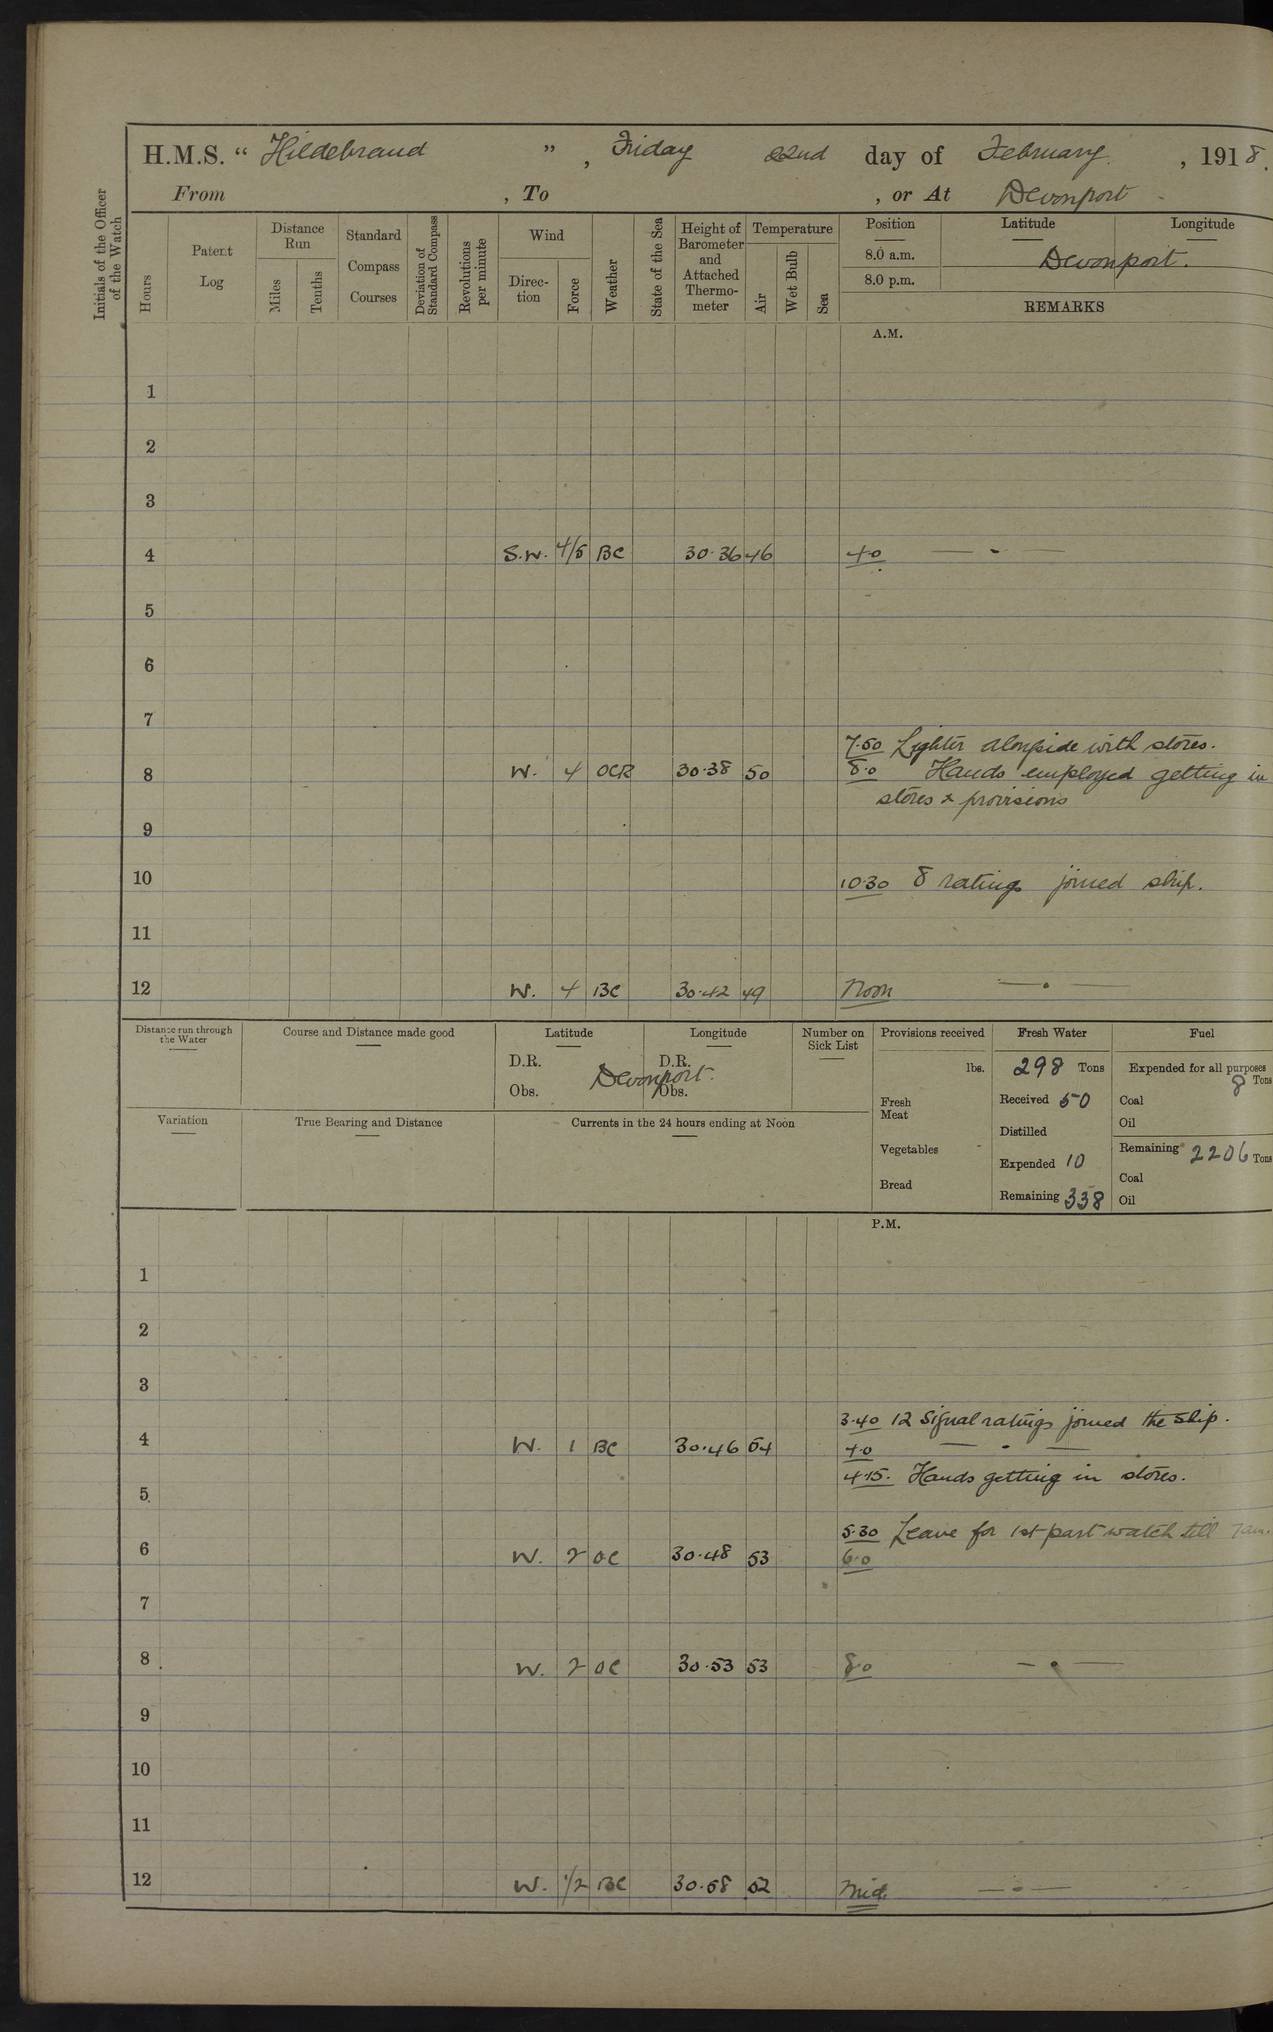 H.M.S. " Hildebrand ", Friday 22nd day of February, 1918.
From , To , or At Devonport
Initials of the Officer of the Watch
Hours
Patent Log
Distance Run
Miles
Tenths
Standard Compass Courses
Deviation of Standard Compass
Revolutions per minute
Wind
Direction
Force
Weather
State of the Sea
Height of Barometer and Attached Thermometer
Temperature
Air
Wet Bulb
Sea
Position Latitude Longitude
8.0 a.m. Devonport.
8.0 p.m.
REMARKS
A.M.
1
2
3
4 S.W. 4/5 BC 30.36 46 4.0 — . —
5
6
7
7.50 Lighter alongside with stores.
8 W. 4 OCR 30.38 50 8.0 Hands employed getting in
stores & provisions
9
10 10.30 8 ratings joined ship.
11
12 W. 4 BC 30.42 49 Noon — . —
Distance run through the Water
Course and Distance made good
Latitude
D.R.
Obs.
Longitude
D.R.
Obs.
Devonport.
Number on Sick List
Variation
True Bearing and Distance
Currents in the 24 hours ending at Noon
Provisions received
lbs.
Fresh Meat
Vegetables
Bread
Fresh Water
298 Tons
Received 50
Distilled
Expended 10
Remaining 338
Fuel
Expended for all purposes
8 Tons
Coal
Oil
Remaining 2206 Tons
Coal
Oil
P.M.
1
2
3
3.40 12 Signal ratings joined the ship.
4 W. 1 BC 30.46 54 4.0 — . —
4.15. Hands getting in stores.
5
5.30 Leave for 1st part watch till 7am.
6 W. 2 OC 30.48 53 6.0
7
8 W. 2 OC 30.53 53 8.0 — . —
9
10
11
12 W. 1/2 BC 30.58 52 Mid. — . —